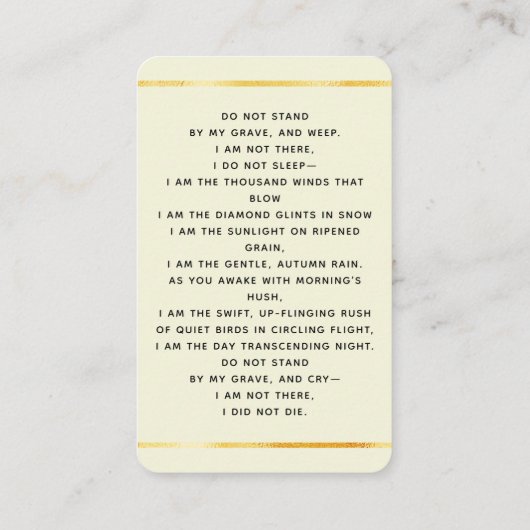 DO NOT STAND
BY MY GRAVE, AND WEEP.
I AM NOT THERE,
I DO NOT SLEEP—
I AM THE THOUSAND WINDS THAT
BLOW
I AM THE DIAMOND GLINTS IN SNOW
I AM THE SUNLIGHT ON RIPENED
GRAIN,
I AM THE GENTLE, AUTUMN RAIN.
AS YOU AWAKE WITH MORNING'S
HUSH,
I AM THE SWIFT, UP-FLINGING RUSH
OF QUIET BIRDS IN CIRCLING FLIGHT,
I AM THE DAY TRANSCENDING NIGHT.
DO NOT STAND
BY MY GRAVE, AND CRY—
I AM NOT THERE,
I DID NOT DIE.